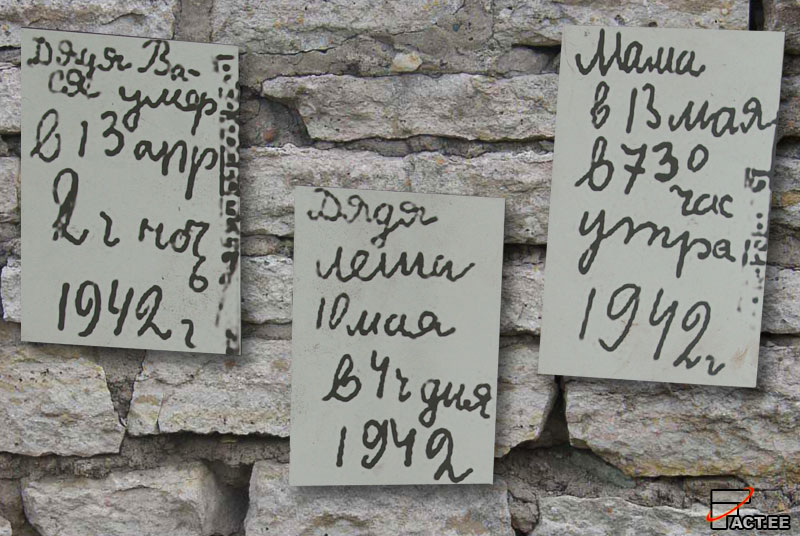 Дядя Ва-
ся умер
в 13 апр
2 ч ноч
ь
1942 г
Дядя
леша
10 мая
в 4 ч дня
1942
Мама
в 13 мая
в 730
час
утра
1942 г
FACT.EE